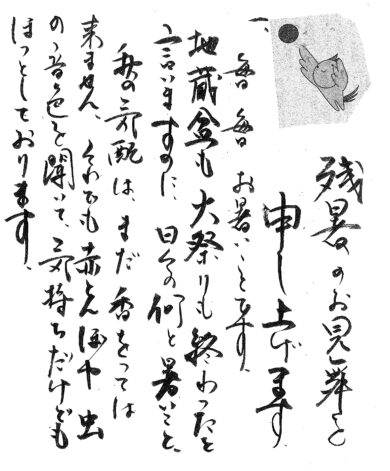 残暑のお見舞を
申し上げます。
毎日毎日お暑いことです。
地蔵盆も大祭りも終わったと
言いますのに、日々の何と暑いこと、
秋の気配は、まだ香をっては
来ません、それでも赤とんぼや虫
の音色を聞いて、気持ちだけども
ほっとしております。